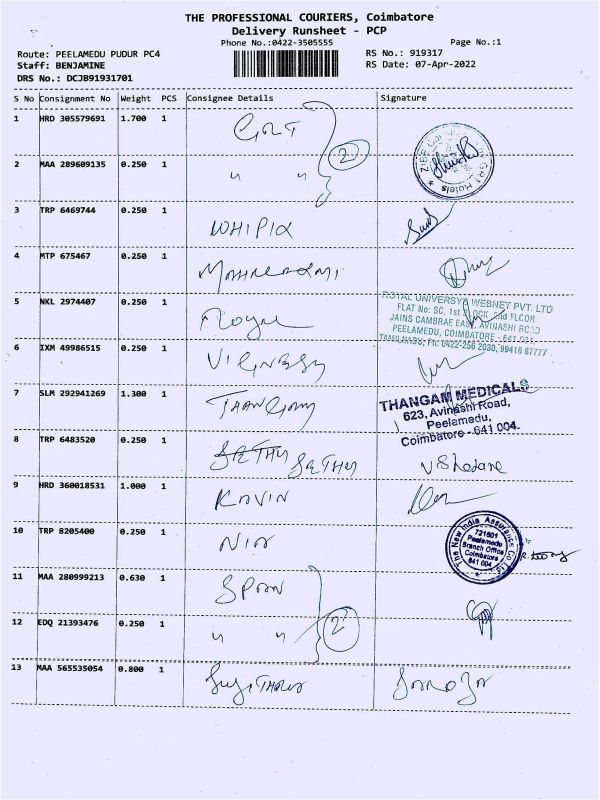 THE PROFESSIONAL COURIERS, Coimbatore
Delivery Runsheet - PCP
Phone No.:0422-3505555
Page No.:1
Route: PEELAMEDU PUDUR PC4
RS No.: 919317
Staff: BENJAMINE
RS Date: 07-Apr-2022
DRS No.: DCJB91931701
S No Consignment No Weight PCS Consignee Details Signature
1 HRD 305579691 1.700 1 GRT
2
2 MAA 289609135 0.250 1 " "
3 TRP 6469744 0.250 1 WHIPIX
4 MTP 675467 0.250 1 MAHALAXMI
5 NKL 2974407 0.250 1
ROYAL UNIVERSYS WEBNET PVT. LTD
FLAT No: SC, 1st BLOCK, 2nd FLOOR
JAINS CAMBRAE EAST, AVINASHI ROAD
PEELAMEDU, COIMBATORE - 641 004.
TAMILNADU, Ph: 0422-256 2030, 99418 87777
6 IXM 49986515 0.250 1 VIGNESH
7 SLM 292941269 1.300 1 THANGAM
THANGAM MEDICALS
623, Avinashi Road,
Peelamedu,
Coimbatore - 641 004.
8 TRP 6483520 0.250 1 SETHU SETHU
9 HRD 360018531 1.000 1 KAVIN
10 TRP 8205400 0.250 1 NIA
The New India Assurance Co Ltd
721601
Peelamedu
Branch Office
Coimbatore
641 004
11 MAA 280999213 0.630 1 SPAN
2
12 EDQ 21393476 0.250 1 " "
13 MAA 565535054 0.800 1 SUJITHARA SAROJA